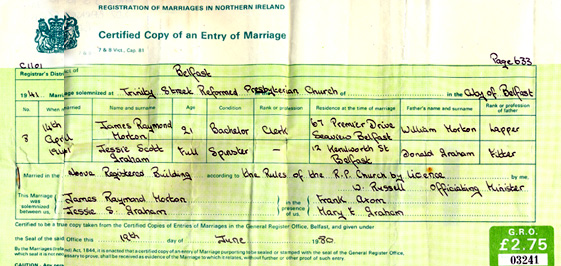 REGISTRATION OF MARRIAGES IN NORTHERN IRELAND
Certified Copy of an Entry of Marriage
7 & 8 Vict., Cap. 81
C1101
Page 633
Registrar's District of Belfast
1941. Marriage solemnized at Trinity Street Reformed Presbyterian Church of in the City of Belfast
No. When married Name and surname Age Condition Rank or profession Residence at the time of marriage Father's name and surname Rank or profession of father
8 14th April 1941 James Raymond Horton 21 Bachelor Clerk 67 Premier Drive Seaview Belfast William Horton Lapper
Jessie Scott Graham Full Spinster — 12 Kenilworth St Belfast Donald Graham Fitter
Married in the above Registered Building according to the Rules of the R.P. Church by Licence by me.
W. Russell Officiating Minister
This Marriage was solemnized between us, James Raymond Horton Jessie S. Graham in the presence of us Frank Mary E Graham
Certified to be a true copy taken from the Certified Copies of Entries of Marriages in the General Register Office, Belfast, and given under
the Seal of the said Office this 19th day of June 1980
By the Marriages Act, 1844, is enacted that a certified copy of an Entry of Marriage purporting to be sealed or stamped with the seal of the General Register Office,
which seal it is not necessary to prove, shall be received as evidence of the Marriage to which it relates, without further or other proof of such entry.
CAUTION
G.R.O.
£2.75
03241